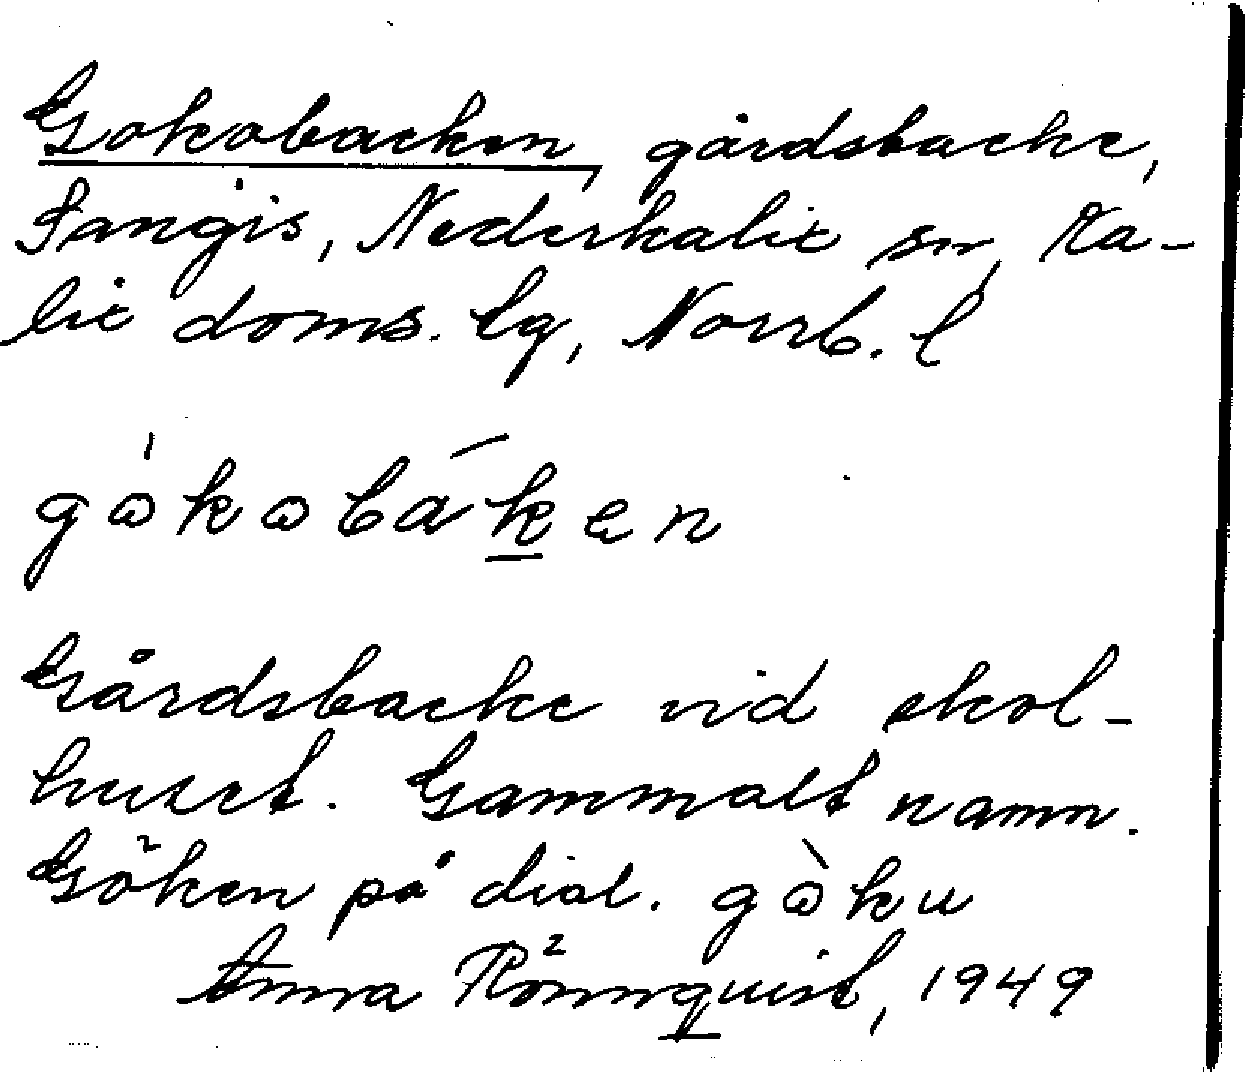 Gokobacken, gårdsbacke,
Sangis, Nederkalix sn, Ka-
lix doms. lg, Norrb. l
Gårdsbacke vid skol-
huset. Gammalt namn.
Göken på dial.
Anna Rönnquist, 1949